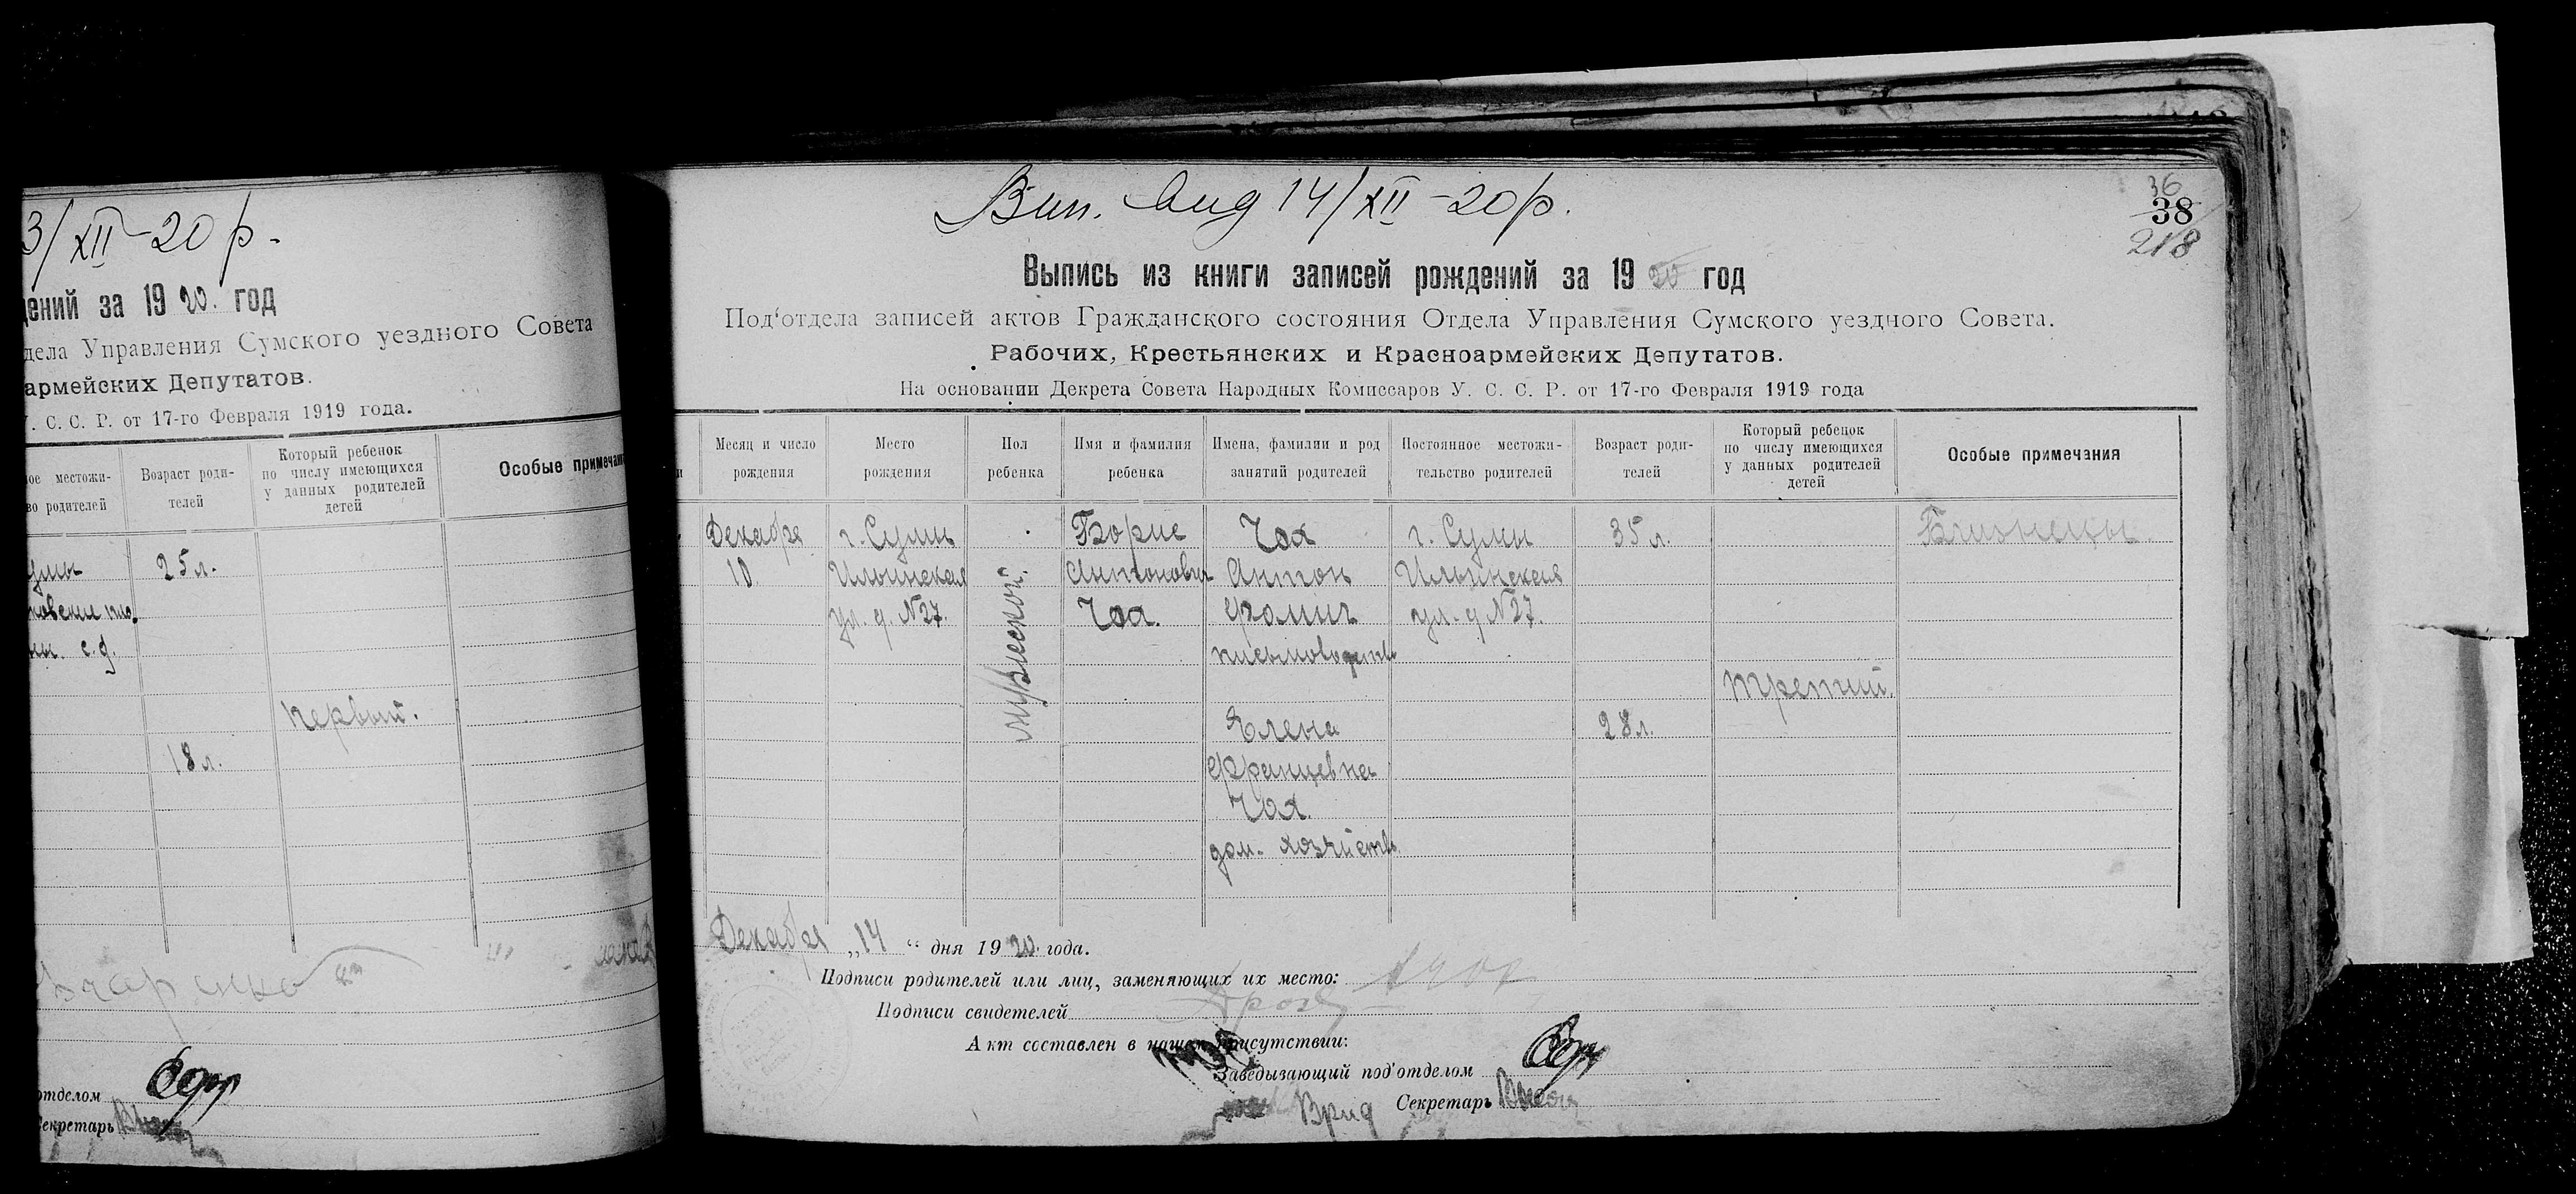 3/XII-20 р.
дений за 1920. год
дела Управления Сумского уездного Совета
армейских Депутатов.
У. С. С. Р. от 17-го Февраля 1919 года.
ное местожи-
во родителей
Возраст роди-
телей
Который ребенок
по числу имеющихся
у данных родителей
детей
Особые примечан
умы
25 л.
с. д.
первый.
18 л.
отделом
Секретарь
36
38
218
Вип. вид 14/XII-20 р.
Выпись из книги записей рождений за 1920 год
Под‘отдела записей актов Гражданского состояния Отдела Управления Сумского уездного Совета.
Рабочих, Крестьянских и Красноармейских Депутатов.
На основании Декрета Совета Народных Комиссаров У. С. С. Р. от 17-го Февраля 1919 года
Месяц и число
рождения
Место
рождения
Пол
ребенка
Имя и фамилия
ребенка
Имена, фамилии и род
занятий родителей
Постоянное местожи-
тельство родителей
Возраст роди-
телей
Который ребецок
по числу имеющихся
у данных родителей
детей
Особые примечания
Декабря
10.
г. Сумы
Ильинская
ул. д. №27.
мужеской.
Борис
Антонович
Чох.
Чох
Антон
Фомич
письмоводитель
Елена
Францевна
Чох.
дом. хозяйство
г. Сумы
Ильинская
ул. д №27.
35 л.
28 л.
третий.
Близнецы.
Декабря „14“ дня 1920 года.
Подписи родителей или лиц, заменяющих их место:
Подписи свидетелей
Акт составлен в нашем присутствии:
Заведывающий под‘отделом
Врид Секретарь